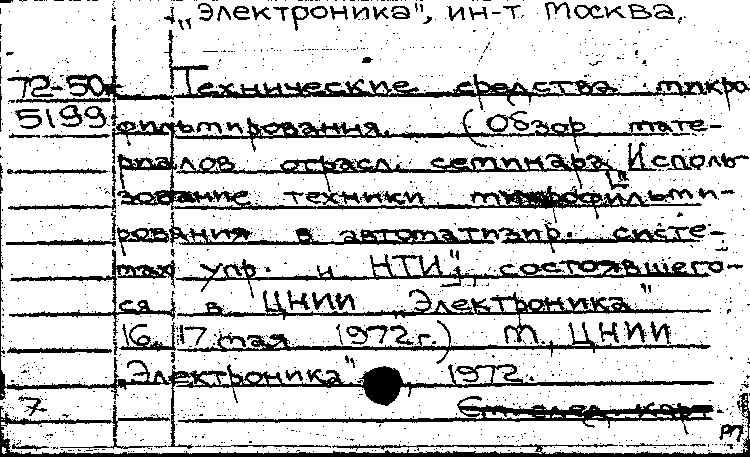 „Электроника", ин-т Москва.
72-50 Технические средства микро
5199 фильмирования. (Обзор мате-
риалов отрасл. семинара „Исполь-
зование техники микрофильми-
рования в автоматизир. систе-
мах упр. и НТИ", состоявшего-
ся в ЦНИИ „Электроника"
16, 17 мая 1972г.) М., ЦНИИ
„Электроника", 1972.
7 См. след. карт.